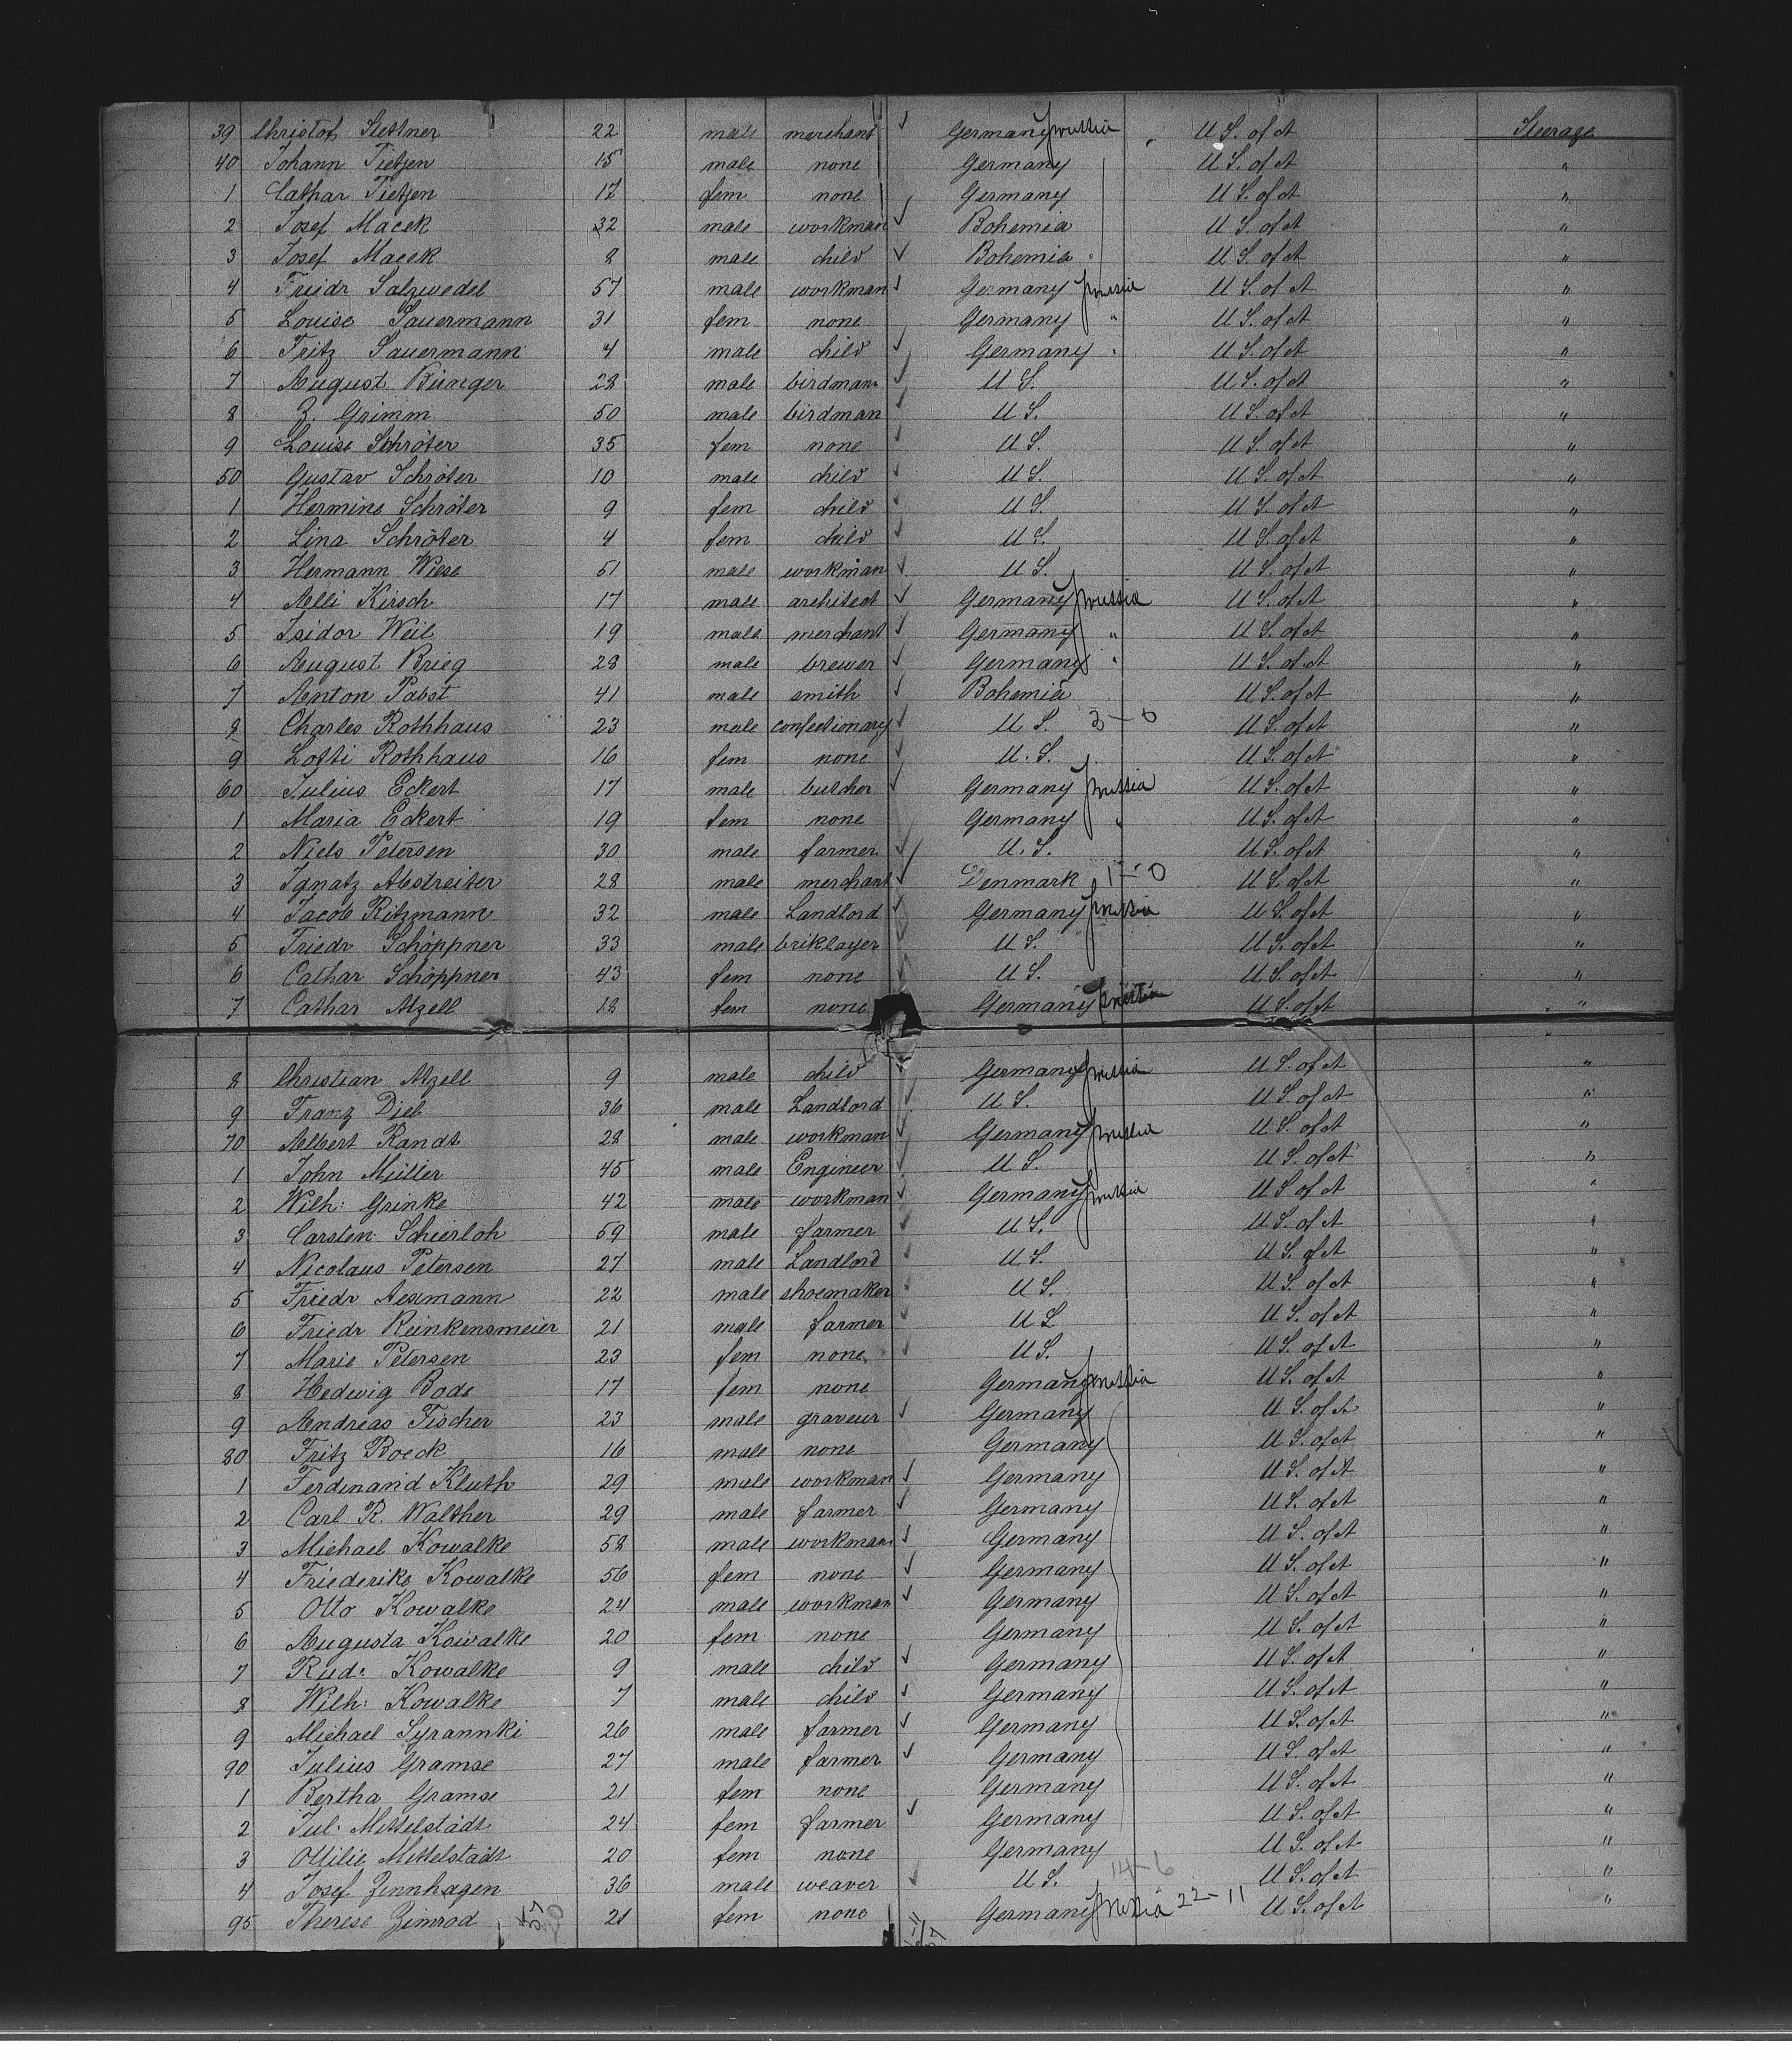 39 Christof Stettner 22 male merchant ✓ Germany prussia U S. of A Steerage
40 Johann Tietjen 15 male none Germany U S. of A "
1 Cathar Tietjen 17 fem none Germany U S. of A "
2 Josef Macek 32 male workman ✓ Bohemia U S. of A "
3 Josef Macek 8 male child ✓ Bohemia U S. of A "
4 Friedr Salzwedel 57 male workman ✓ Germany prussia U S. of A "
5 Louise Sauermann 31 fem none Germany " U S. of A "
6 Fritz Sauermann 4 male child ✓ Germany " U S. of A "
7 August Bünger 28 male birdman ✓ U S. U S. of A "
8 Z. Grimm 50 male birdman ✓ U S. U S. of A "
9 Louise Schröter 35 fem none ✓ U S. U S. of A "
50 Gustav Schröter 10 male child ✓ U S. U S. of A "
1 Hermine Schröter 9 fem child ✓ U S. U S. of A "
2 Lina Schröter 4 fem child ✓ U S. U S. of A "
3 Hermann Wiese 51 male workman ✓ U S. U S. of A "
4 Alli Kirsch 17 male architect ✓ Germany prussia U S. of A "
5 Isidor Weil 19 male merchant ✓ Germany " U S. of A "
6 August Brieg 28 male brewer ✓ Germany " U S. of A "
7 Anton Pabst 41 male smith ✓ Bohemia U S. of A "
8 Charles Rothhaus 23 male confectionary ✓ U S. 3-0 U S. of A "
9 Lotti Rothhaus 16 fem none ✓ U. S. U S. of A "
60 Julius Eckert 17 male butcher ✓ Germany prussia U S. of A "
1 Maria Eckert 19 fem none Germany " U S. of A "
2 Niels Petersen 30 male farmer ✓ U. S. U S. of A "
3 Ignatz Abstreiter 28 male merchant ✓ Denmark 1-0 U S. of A "
4 Jacob Ritzmann 32 male Landlord ✓ Germany prussia U S. of A "
5 Friedr Schöppner 33 male briklayer ✓ U S. U S. of A "
6 Cathar Schöppner 43 fem none ✓ U S. U S. of A "
7 Cathar Atzell 18 fem none Germany prussia U S. of A "
8 Christian Atzell 9 male child ✓ Germany prussia U S. of A "
9 Franz Diel 36 male Landlord ✓ U S. U S. of A "
70 Albert Randt 28 male workman ✓ Germany prussia U S. of A "
1 John Müller 45 male Engineer ✓ U S. U S. of A "
2 Wilh: Grinke 42 male workman ✓ Germany prussia U S of A "
3 Carsten Schierloh 59 male farmer ✓ U S. U S. of A "
4 Nicolaus Petersen 27 male Landlord ✓ U S. U S. of A "
5 Friedr Assmann 22 male shoemaker ✓ U S. U S. of A "
6 Friedr Reinkensmeier 21 male farmer ✓ U S U S. of A "
7 Marie Petersen 23 fem none ✓ U S. U S. of A "
8 Hedwig Bode 17 fem none Germany prussia U S. of A "
9 Andreas Fischer 23 male graveur ✓ Germany U S. of A "
80 Fritz Boeck 16 male none Germany U S. of A "
1 Ferdinand Kluth 29 male workman ✓ Germany U S. of A "
2 Carl R. Walther 29 male farmer ✓ Germany U S. of A "
3 Michael Kowalke 58 male workman ✓ Germany U S. of A "
4 Friederike Kowalke 56 fem none ✓ Germany U S. of A "
5 Otto Kowalke 24 male workman ✓ Germany U S. of A "
6 Augusta Kowalke 20 fem none Germany U S. of A "
7 Rud: Kowalke 9 male child ✓ Germany U S. of A "
8 Wilh: Kowalke 7 male child ✓ Germany U S. of A "
9 Michael Syrannki 26 male farmer ✓ Germany U S. of A "
90 Julius Gramse 27 male farmer ✓ Germany U S. of A "
1 Bertha Gramse 21 fem none Germany U S. of A "
2 Jul: Mittelstädt 24 fem farmer ✓ Germany U S. of A "
3 Ottilie Mittelstädt 20 fem none Germany U S. of A "
4 Josef Zinnhagen 36 male weaver ✓ U S. 14-6 U S. of A "
95 Therese Zimrod 21 fem none Germany prussia 22-11 U S. of A "